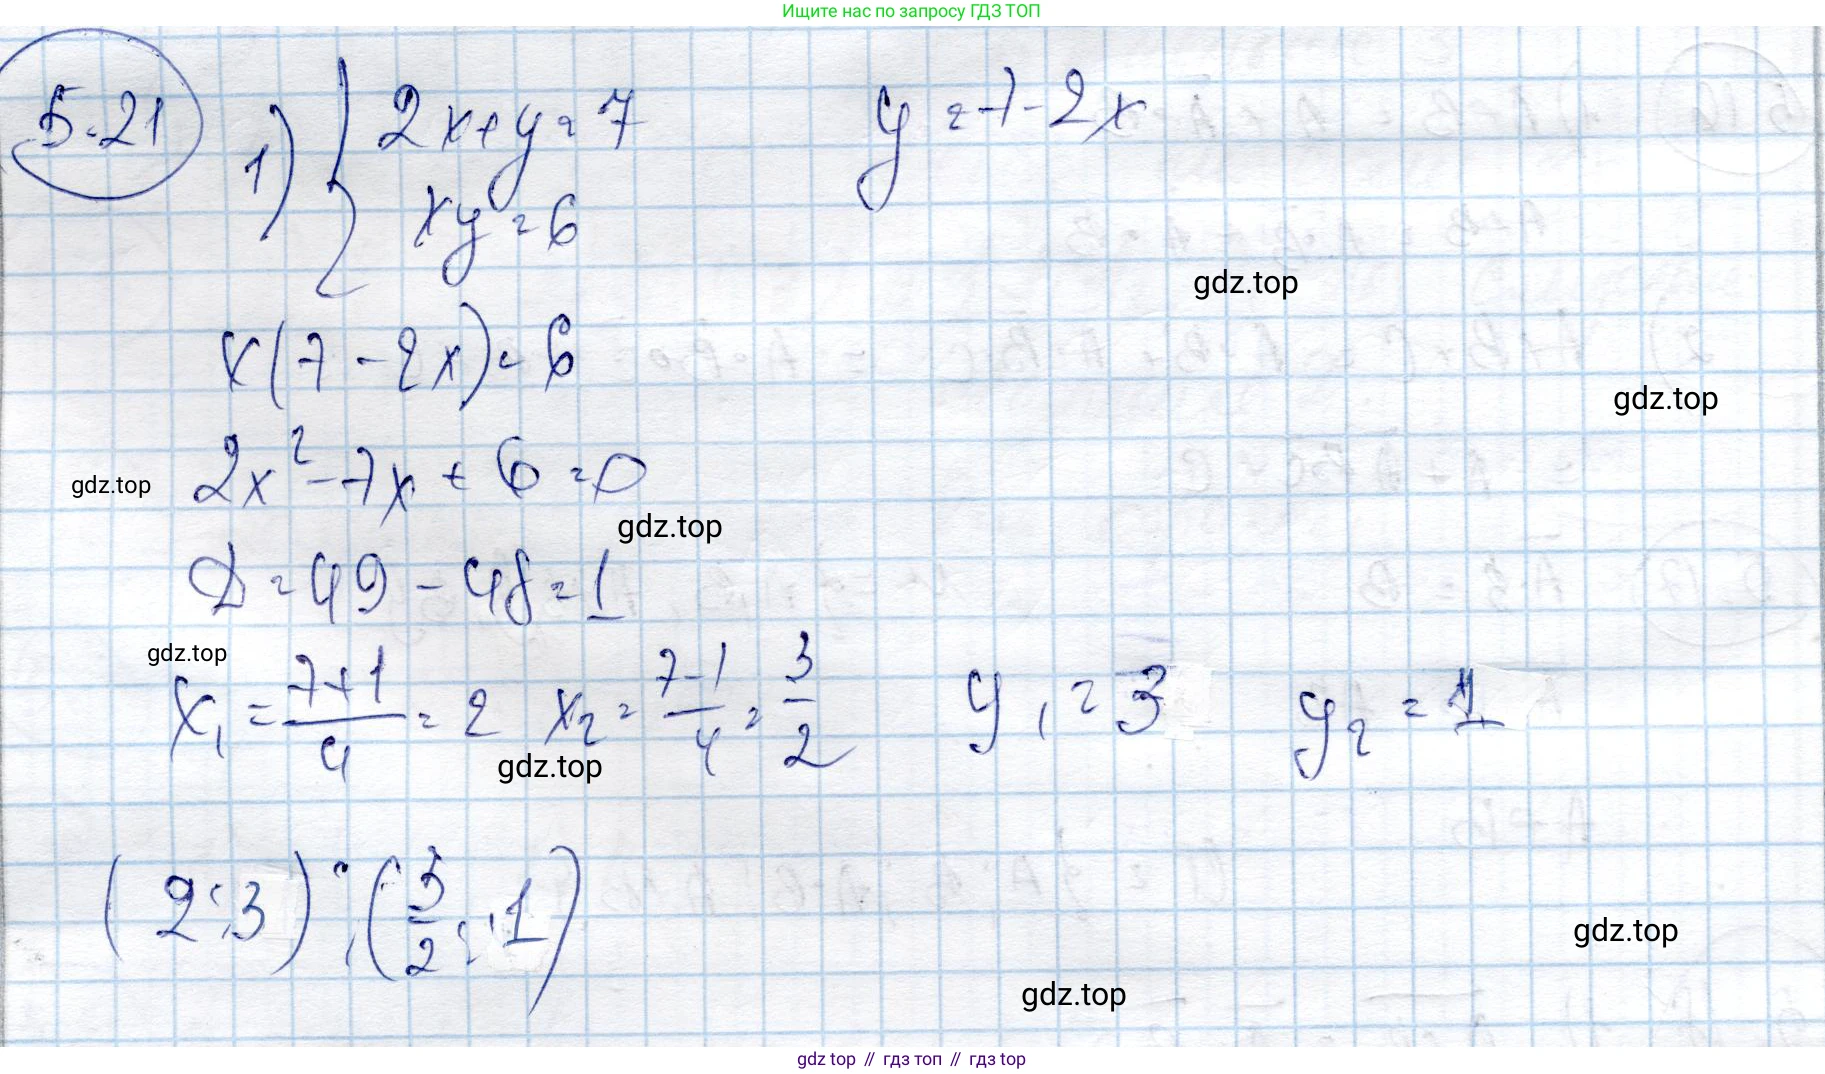 Ищите нас по запросу ГДЗ ТОП
5.21
1) { 2x+y=7    y=7-2x
xy=6
gdz.top
x(7-2x)=6
gdz.top
2x²-7x+6=0
gdz.top
gdz.top
D=49-48=1
gdz.top
x₁=(7+1)/4=2  x₂=(7-1)/4=3/2  y₁=3  y₂=1
gdz.top
(2;3); (3/2; 1)
gdz.top
gdz.top
gdz top // гдз топ // гдз top